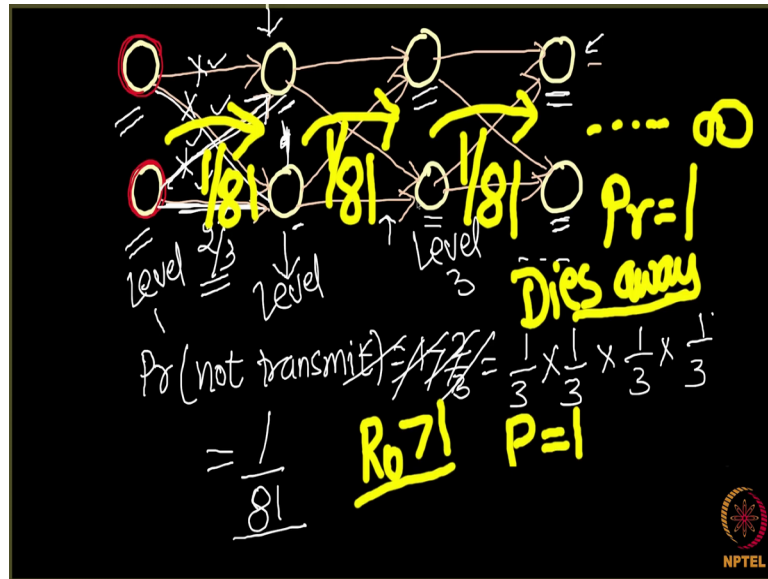 1/81 1/81 1/81 ..... ∞
2/3
Pr=1
Level 1
Level
Level 3
Dies away
Pr(not transmit) = 1-2/3 = 1/3 × 1/3 × 1/3 × 1/3
= 1/81
R0>1 P=1
NPTEL